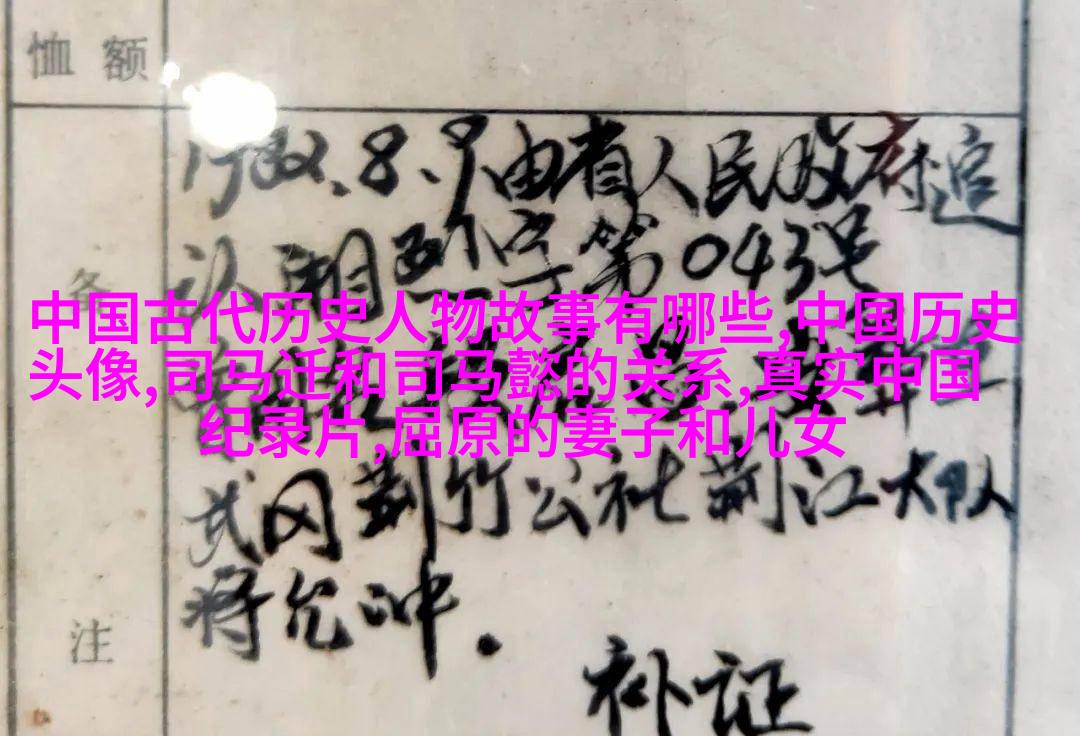 恤额
1982.8.9由省人民政府追
认湘烈字第043号
备
中国古代历史人物故事有哪些,中国历史
头像,司马迁和司马懿的关系,真实中国
纪录片,屈原的妻子和儿女
武冈荆竹公社荆江大队
蒋允冲.
注
补证